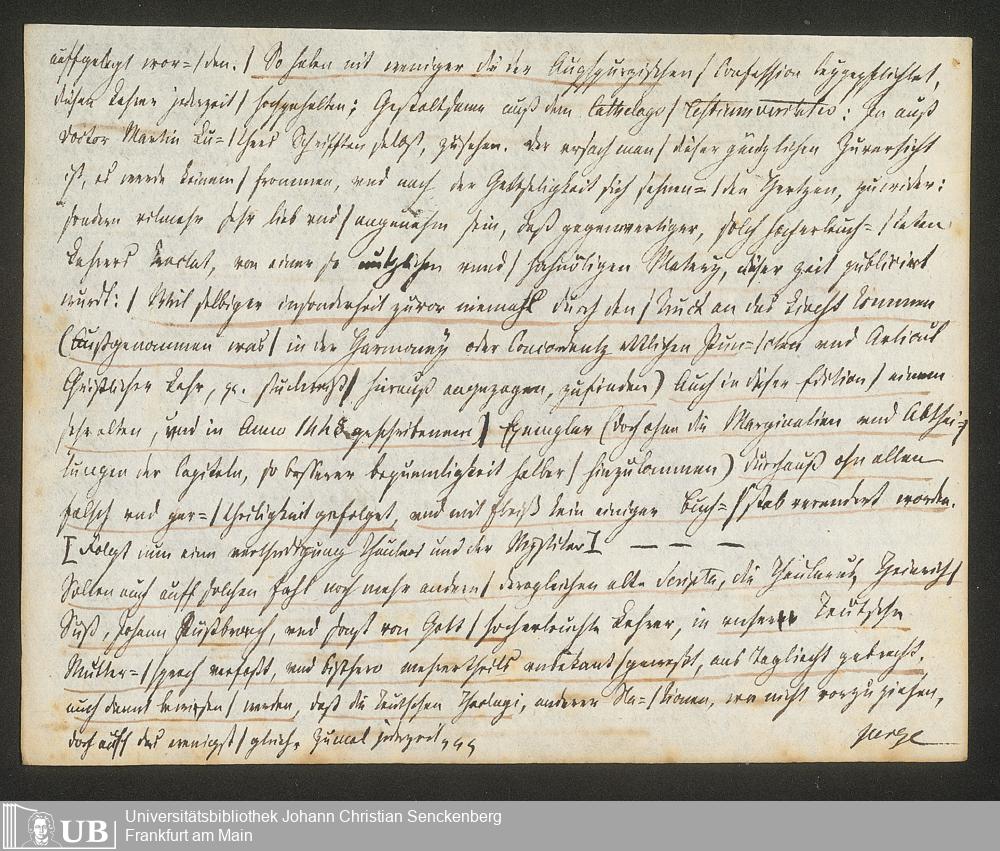 auffgelegt wor=/den. / So haben nit weniger die der Augspurgischen / Confession beygepflichtet,
diesen Lehrer jederzeit / hochgehalten: Gestaltsame auß dem Cattalogo / testium veritatis: In auß
Doctor Martin Lu=/thers Schrifften selbst, zusehen. Der ursach man / diser gäntzlichen Zuversicht
ist, es werde keinem / frommen, und nach der Gottseligkeit sich sehnen=/den Hertzen, zuwider:
sondern vilmehr sehr lieb und / angenehm sein, daß gegenwertiger, solch hocherleuch=/teten
Lehrers Tractat, von einer so nutzlichen unnd / hochnötigen Matery, diser zeit publiciert
wurdt: / Weil selbiger insonderheit zuvor niemahl durch den / Truck an das Liecht kommen
(außgenommen was / in der Harmoney oder Concordantz etlichen Pun=/cten und Articul
Christlicher Lehr, pp. stuckweiß / hierauß angezogen, zufinden) Auch in diser Edition / einem
sehr alten, und in Anno 1448 geschribenem / Exemplar (doch ohne die Marginalien und Abthei=/
lungen der Capiteln, so besserer bequemligkeit halber / hinzukommen) durchauß ohn allen
falsch und par=/theiligkeit gefolget, und mit fleiß kein einiger Buch=/stab verendert worden.
[Folgt nun eine vertheidigung Thaulers und der Mystiker] — — —
Sollen auch auff solchen fahl noch mehr andere / dergleichen alte Scripta, die Theulerus, Heinrich /
Suß, Johann Rußbroch, und sonst von Gott / hocherleuchte Lehrer, in unserer Teutsche
Mutter=/sprach verfaßt, und bißhero mehrertheils unbekant / gewest, ans Tagliecht gebracht,
auch damit bewisen / werden, daß die Teutschen Theologi, anderen Na=/tionen, wo nicht vorzuziehen,
doch auff das wenigst / gleich. Zumal jederzeit
verge
UB
Universitätsbibliothek Johann Christian Senckenberg
Frankfurt am Main